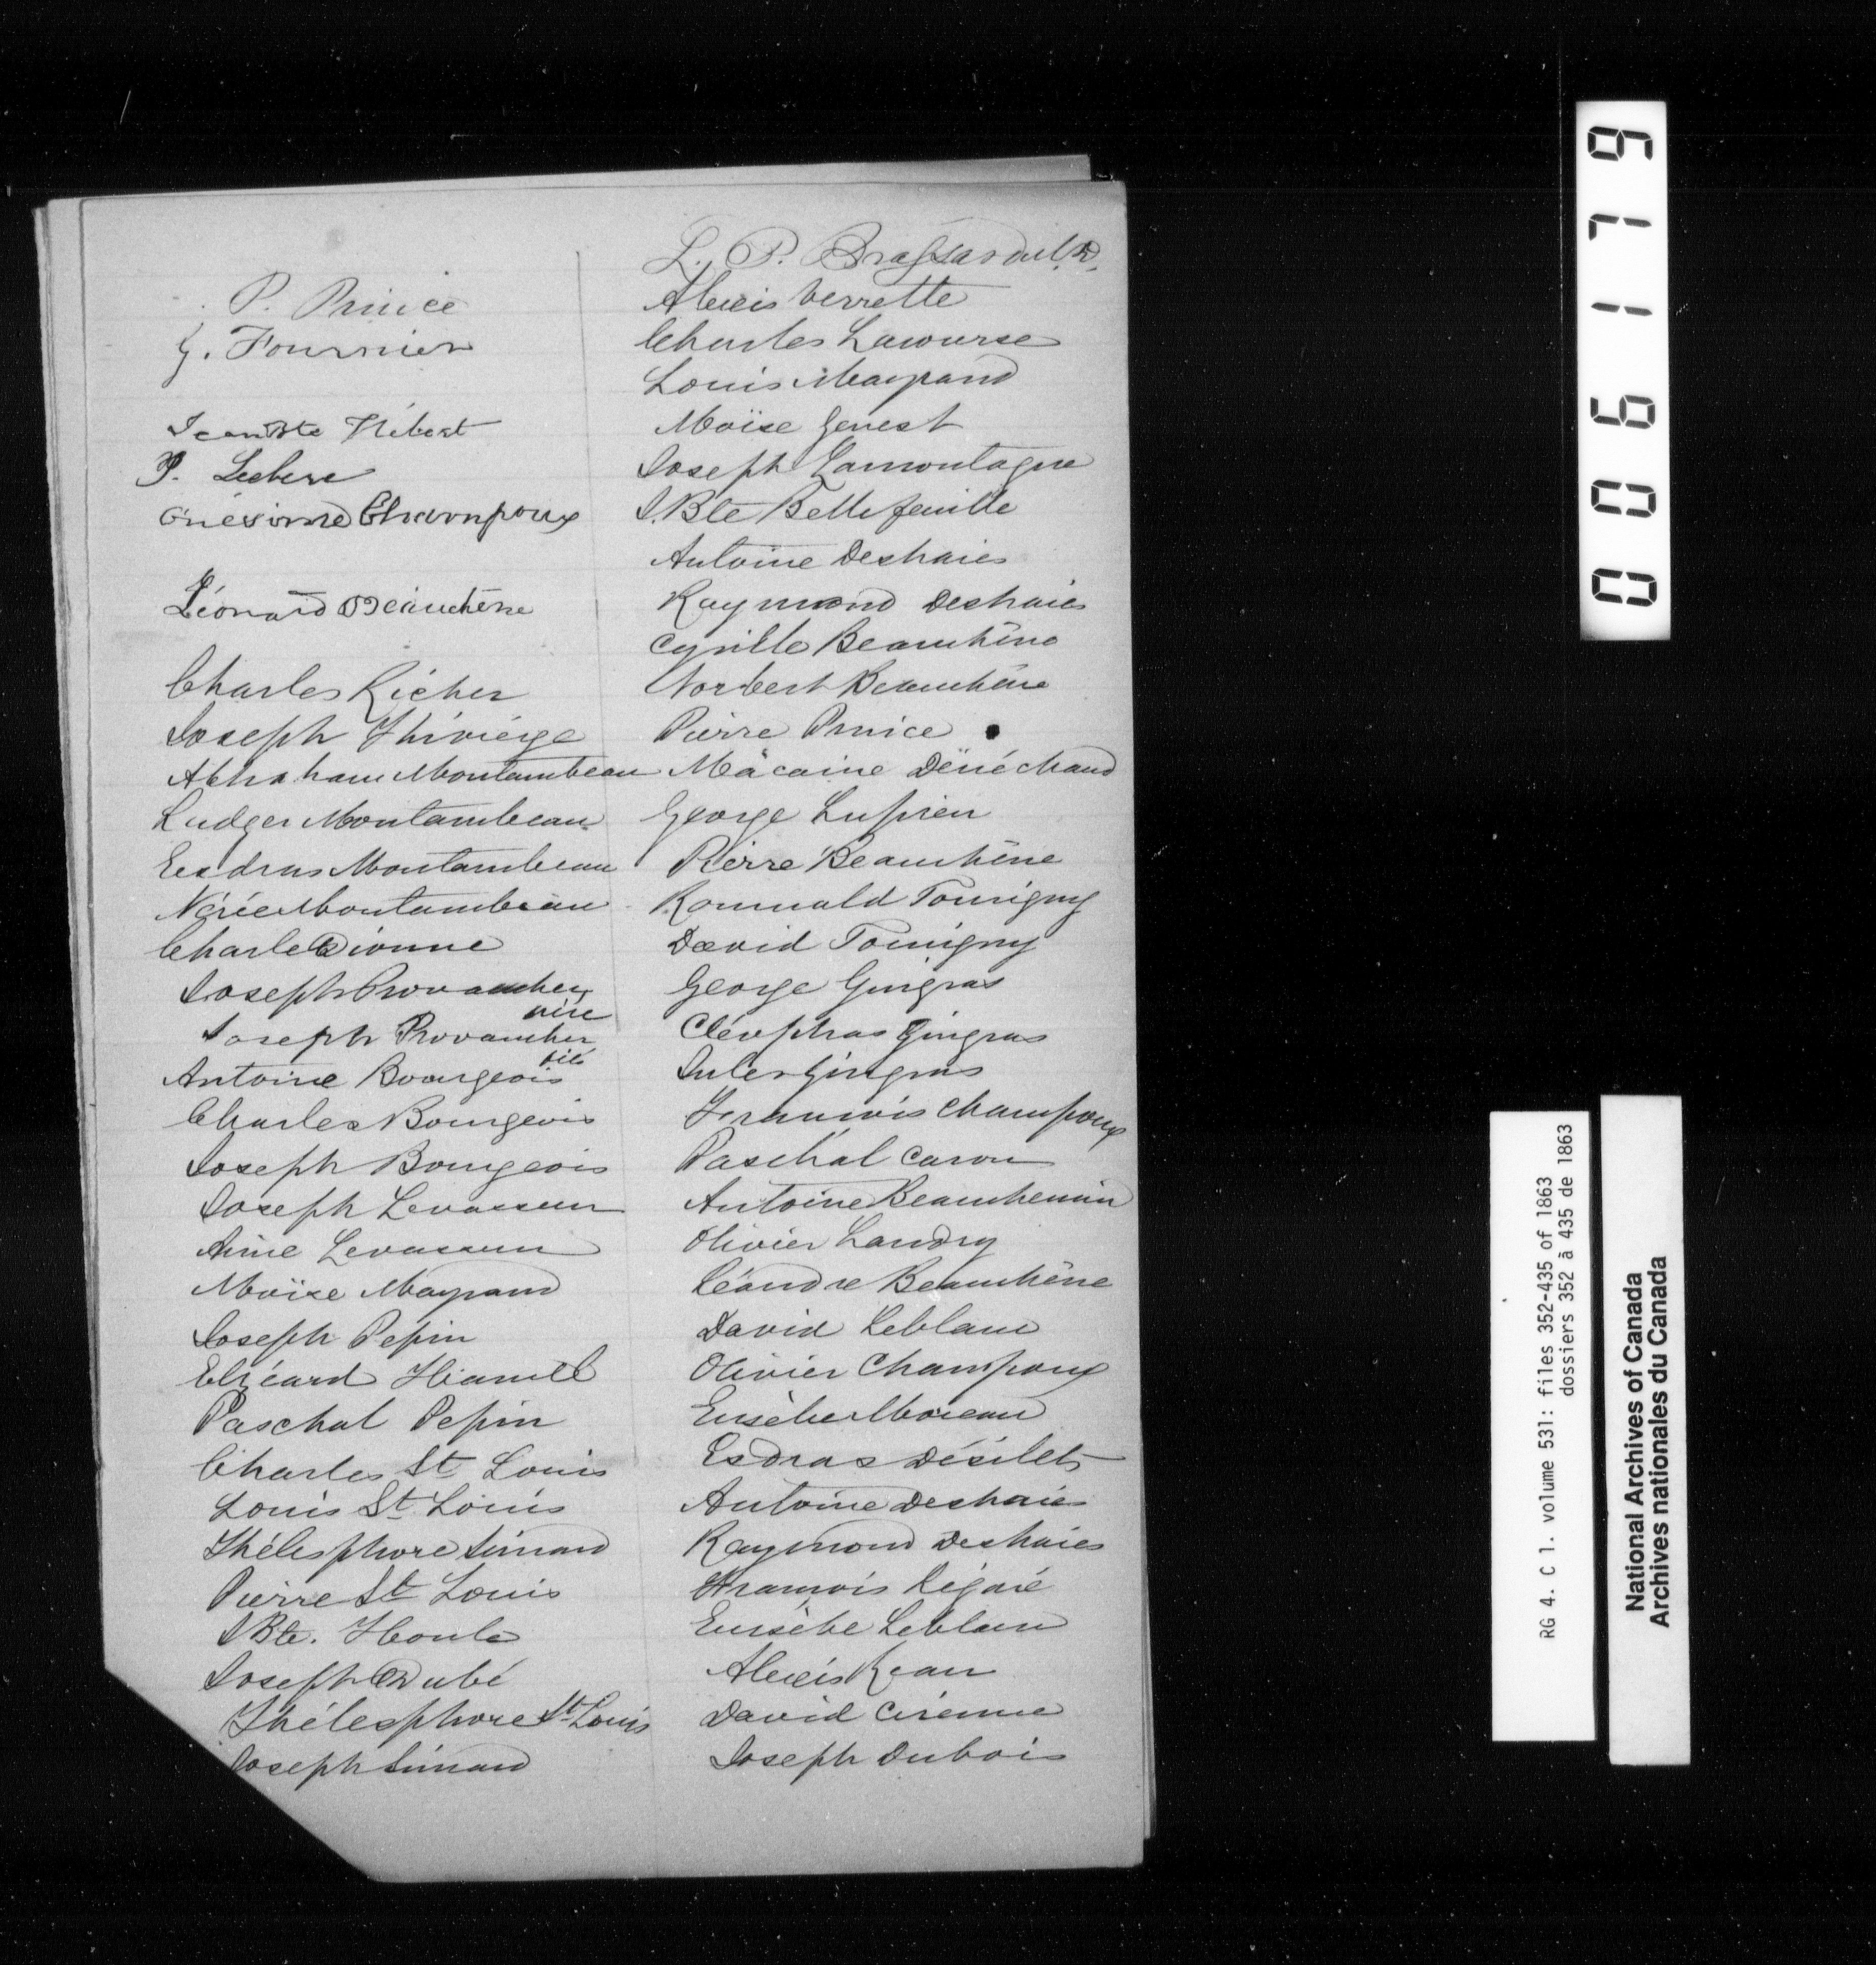 P. Prince
G. Fournier
Jean Bte Hébert
P. Leclerc
Onésime Champoux
Léonard Beauchêne
Charles Richer
Joseph Thiviérge
Abraham Montambeau
Ludger Montambeau
Esdras Montambeau
Nérée Montambeau
Charles Dionne
Joseph Provancher
père
Joseph Provancher
fils
Antoine Bourgeois
Charles Bourgeois
Joseph Bourgeois
Joseph Levasseur
Levasseur
Moïse Maypand
Joseph Pepin
Elzéard Hamel
Paschal Pepin
Charles St Louis
Louis St Louis
Thélesphore Simard
Pierre St Louis
J Bte. Houle
Joseph Dubé
Thélesphore St Louis
Joseph Simard
L. P. Brassard
Alexis Verrette
Charles Lacourse
Louis Maypand
Moïse Genest
Joseph Lamontagne
J. Bte Bellefeuille
Antoine Deshaies
Raymond Deshaies
Cyrille Beauchêne
Norbert Beauchêne
Pierre Prince
Macaine Dénéchaud
George Lupien
Pierre Beauchêne
Romuald Tourigny
David Tourigny
George Gingras
Cléophas Gingras
Jules Gingras
François Champoux
Paschal Caron
Antoine Beauchemin
Olivier Landry
Léandre Beauchêne
David Leblanc
Olivier Champoux
Eusèbe Moreau
Esdras Désilets
Antoine Deshaies
Raymond Deshaies
François Légaré
Eusèbe Leblanc
Alexis
David Cirenne
Joseph Dubois
006179
RG 4. C 1. volume 531: files 352-435 of 1863
dossiers 352 à 435 de 1863
National Archives of Canada
Archives nationales du Canada